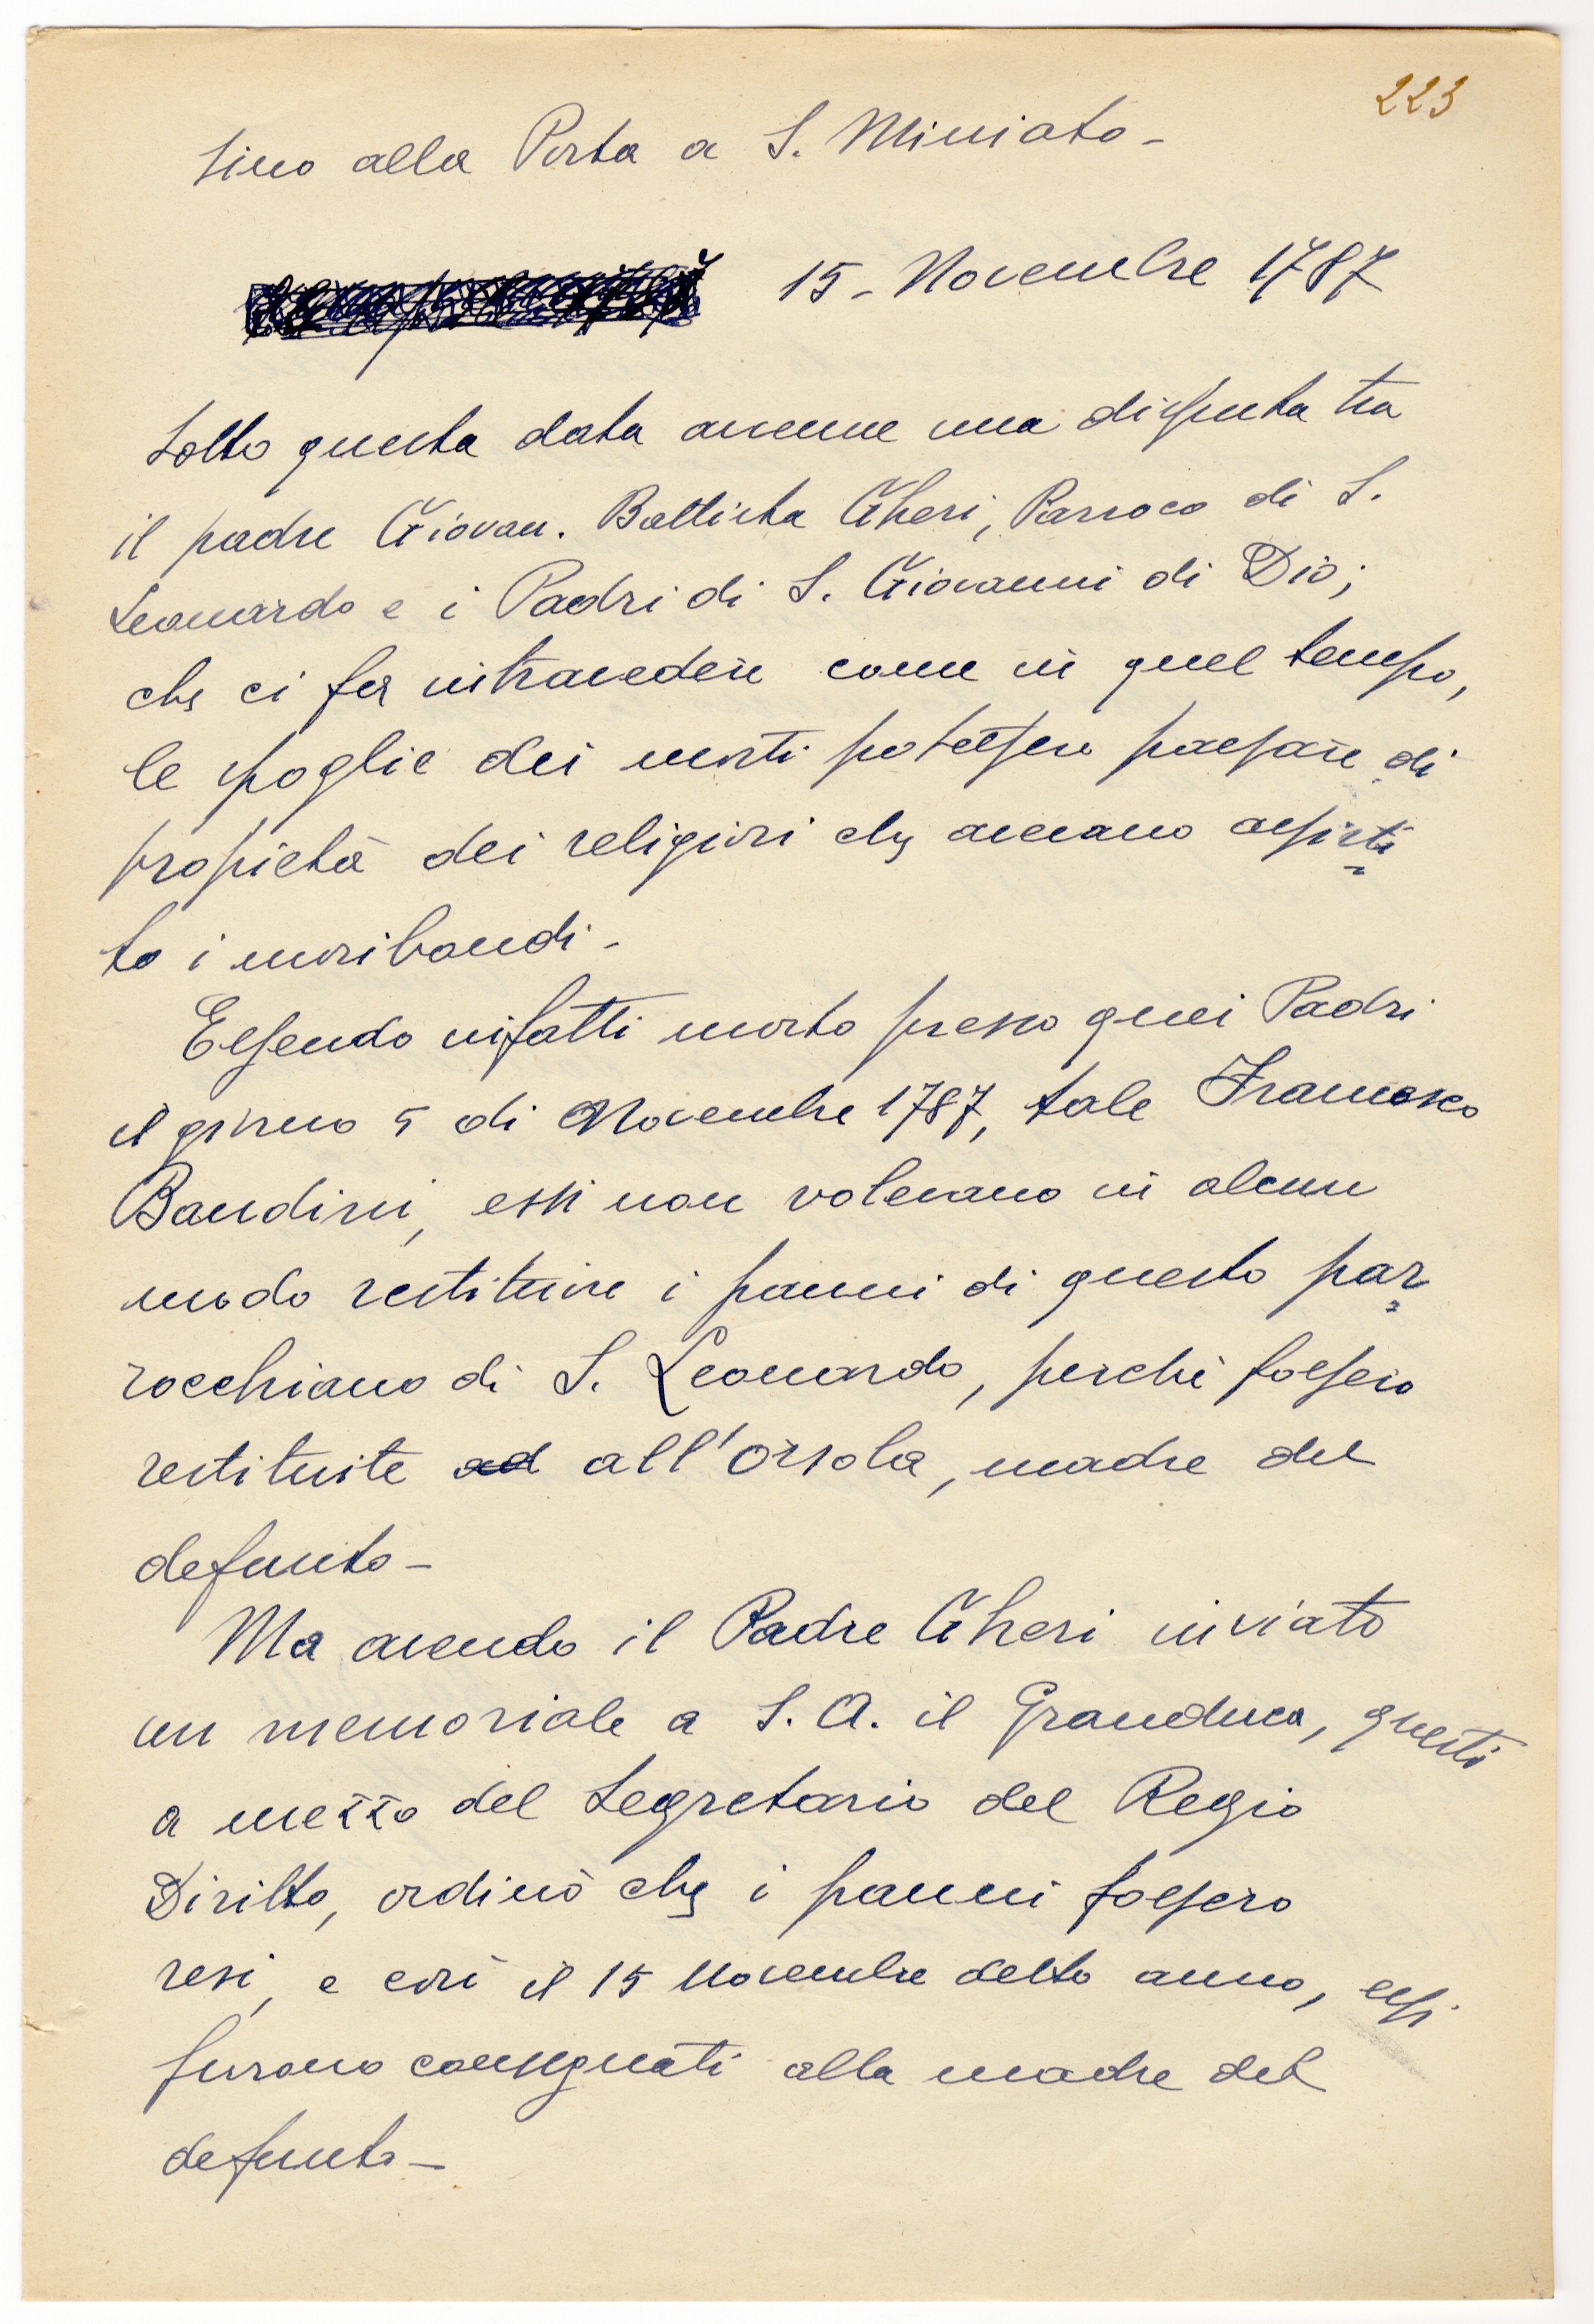 223
sino alla Porta a S. Miniato -
15 - Novembre 1787
Sotto questa data avenne una disputa tra
il padre Giovan. Battista Gheri, Parroco di S.
Leonardo e i Padri di S. Giovanni di Dio;
che ci fa intravedere come in quel tempo,
le spoglie dei morti potessero passare di
propietà dei religiosi che avevano assisti
to i moribondi -
Essendo infatti morto presso quei Padri
il giorno 5 di Novembre 1787, tale Francesco
Bandini, essi non volevano in alcun
modo restituire i panni di questo par
rocchiano di S. Leonardo, perchè fossero
restituite ad all'Orsola, madre del
defunto -
Ma avendo il Padre Gheri inviato
un memoriale a S. A. il Granduca, questi
a mezzo del Segretario del Regio
Diritto, ordinò che i panni fossero
resi, e così il 15 Novembre detto anno, essi
furono consegnati alla madre del
defunto -